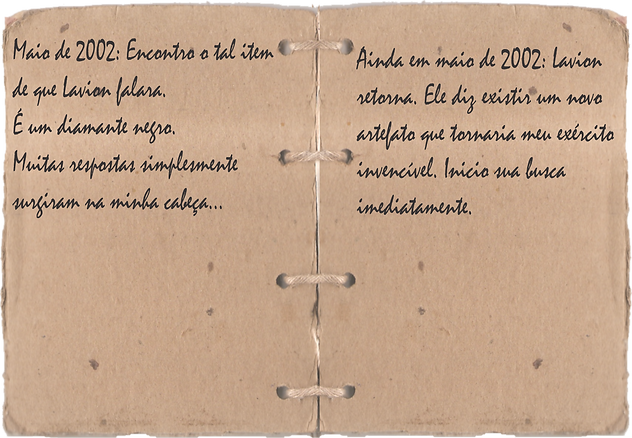 Maio de 2002: Encontro o tal item
de que Lavion falara.
É um diamante negro.
Muitas respostas simplesmente
surgiram na minha cabeça...
Ainda em maio de 2002: Lavion
retorna. Ele diz existir um novo
artefato que tornaria meu exército
invencível. Inicio sua busca
imediatamente.